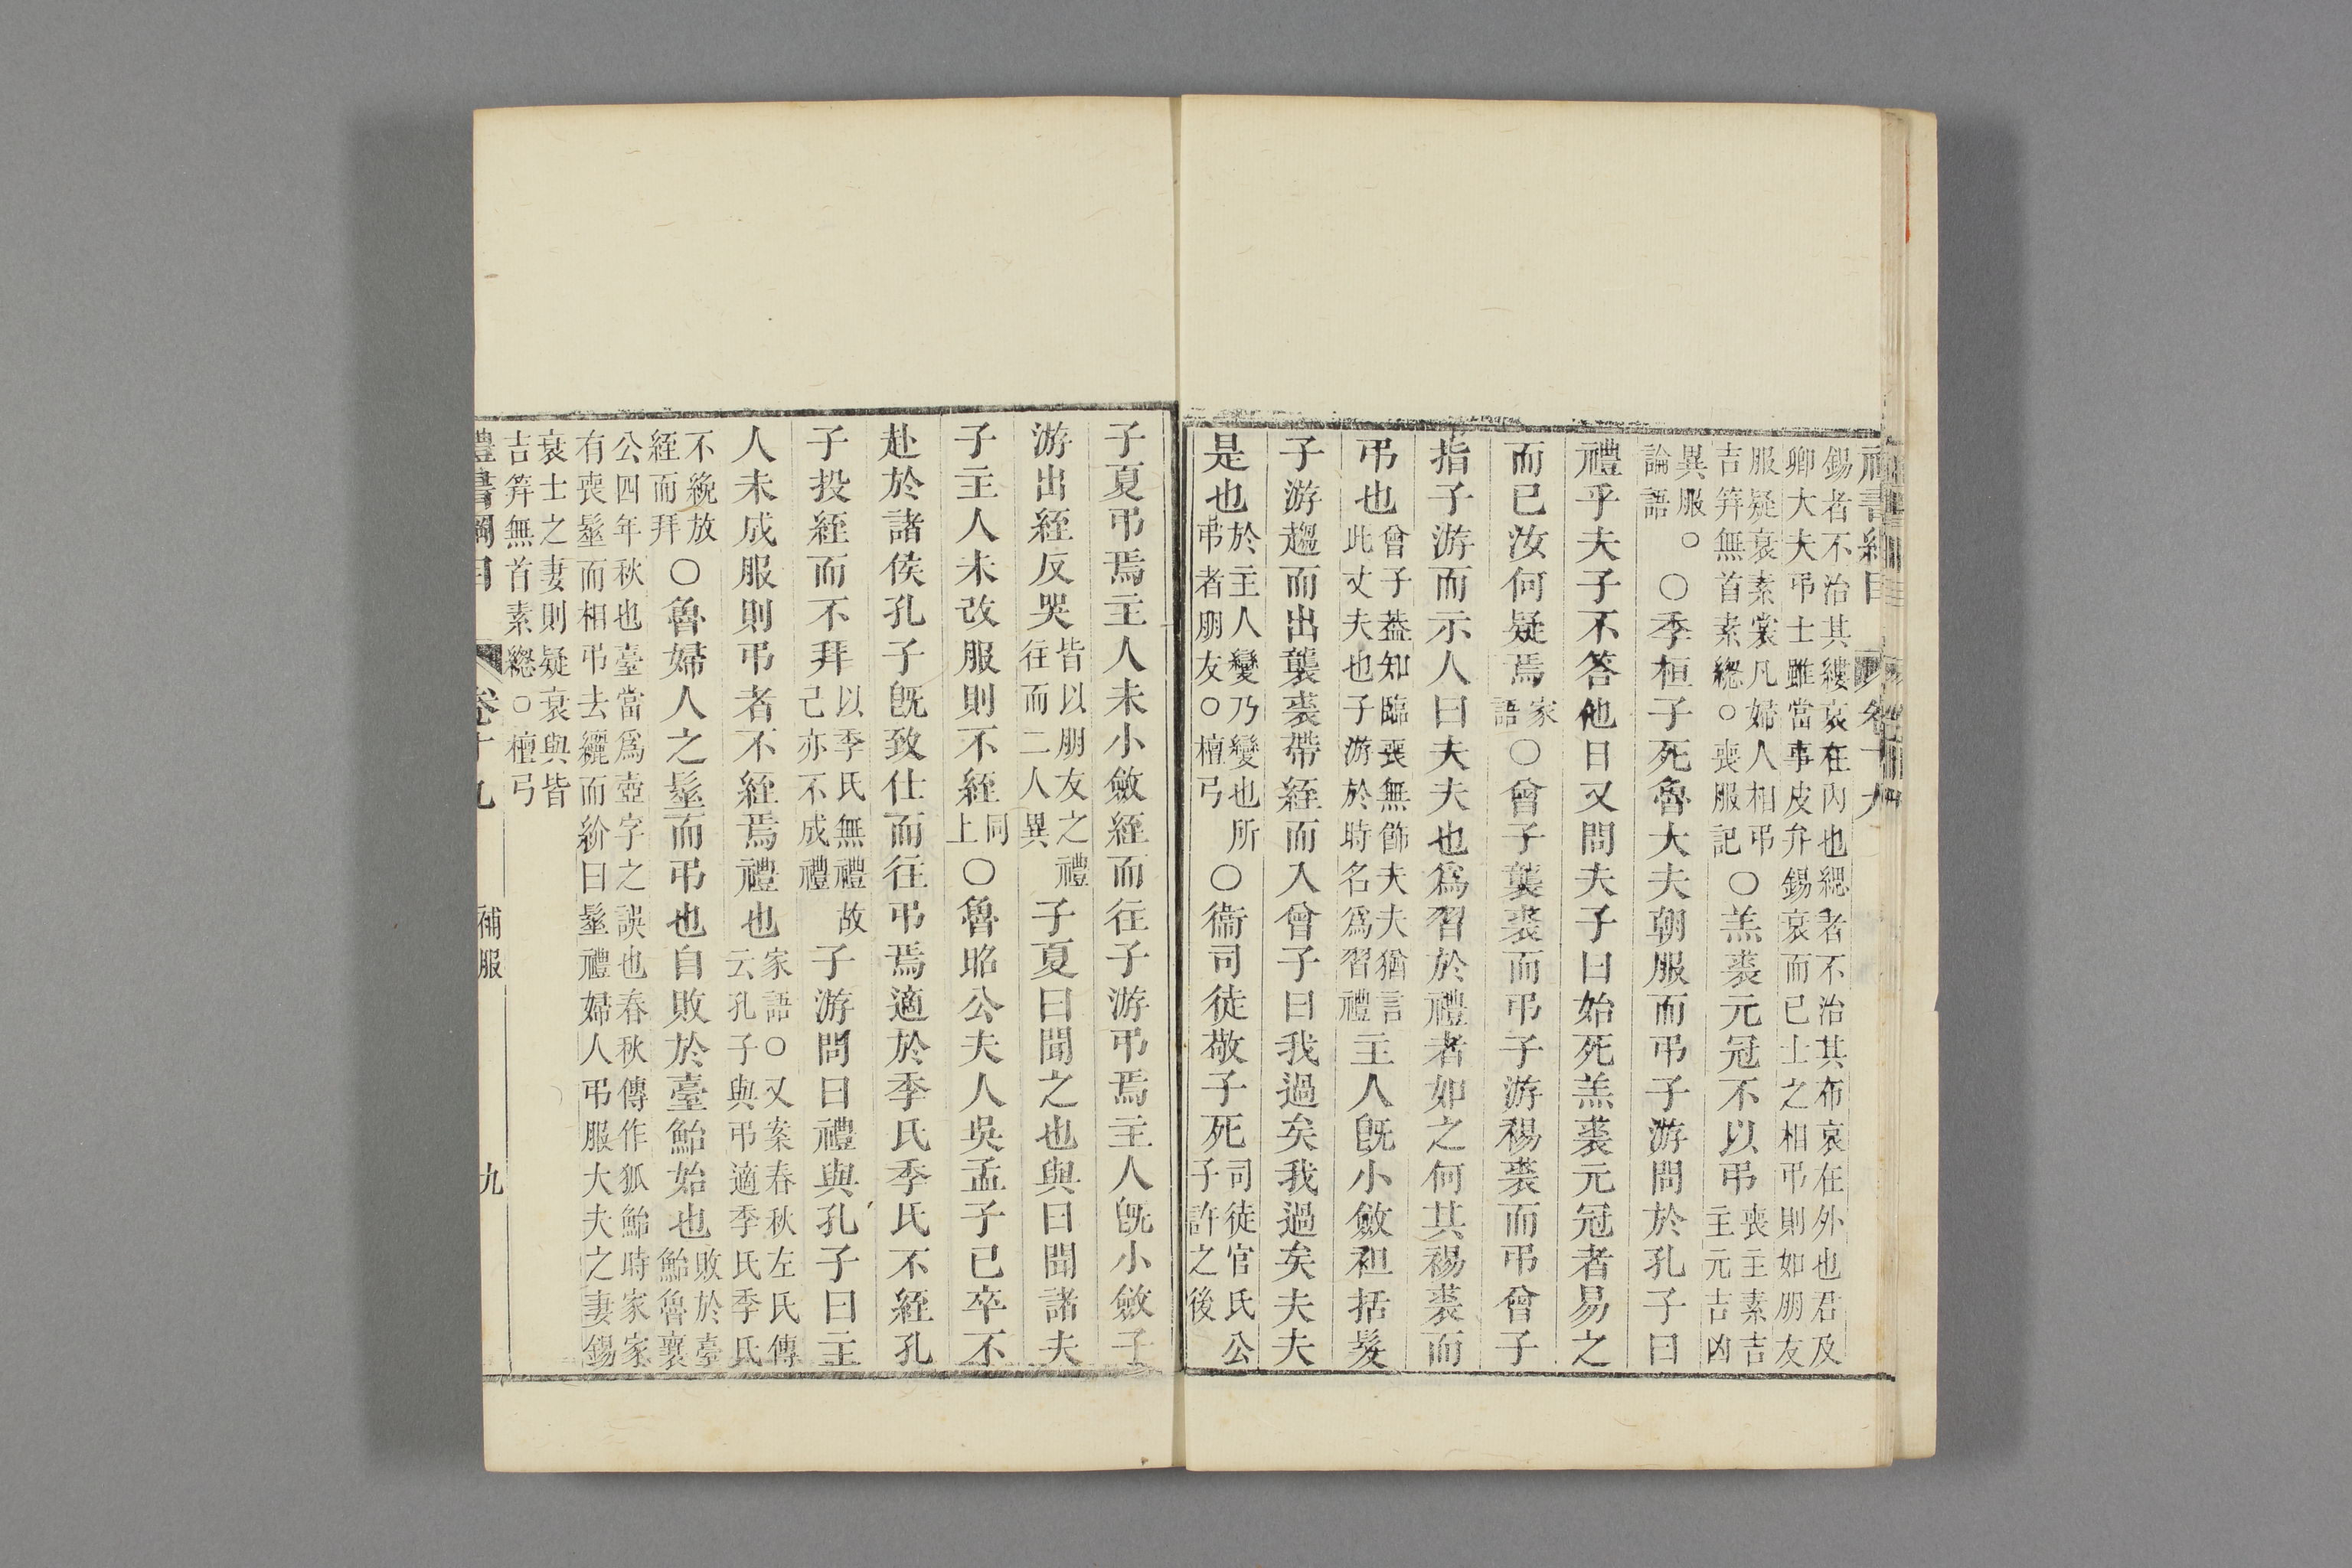 錫者不治其縷哀在內也緦者不治其布哀在外也君及
卿大夫弔士雖當事皮弁錫衰而已士之相弔則如朋友
服疑衰素裳凡婦人相弔
吉笄無首素總○喪服記
○羔裘元冠不以弔
喪主素吉
主元吉凶
異服
論語
○
○季桓子死魯大夫朝服而弔子游問於孔子曰
禮乎夫子不答他日又問夫子曰始死羔裘元冠者易之
而已汝何疑焉
家
語
○曾子襲裘而弔子游裼裘而弔曾子
指子游而示人曰夫夫也爲習於禮者如之何其裼裘而
弔也
曾子蓋知臨喪無飾夫夫猶言
此丈夫也子游於時名爲習禮
主人旣小斂袒括髮
子游趨而出襲裘帶絰而入曾子曰我過矣我過矣夫夫
是也
於主人變乃變也所
弔者朋友○檀弓
○衞司徒敬子死
司徒官氏公
子許之後
子夏弔焉主人未小斂絰而往子游弔焉主人旣小斂子
游出絰反哭
皆以朋友之禮
往而二人異
子夏曰聞之也與曰聞諸夫
子主人未改服則不絰
同
上
○魯昭公夫人吳孟子已卒不
赴於諸侯孔子旣致仕而往弔焉適於季氏季氏不絰孔
子投絰而不拜
以季氏無禮故
己亦不成禮
子游問曰禮與孔子曰主
人未成服則弔者不絰焉禮也
家語○又案春秋左氏傳
云孔子與弔適季氏季氏
不絻放
絰而拜
○魯婦人之髽而弔也自敗於臺鮐始也
敗於臺
鮐魯襄
公四年秋也臺當爲壺字之誤也春秋傳作狐鮐時家家
有喪髽而相弔去纚而紒曰髽禮婦人弔服大夫之妻錫
衰士之妻則疑衰與皆
吉笄無首素總○檀弓
禮書綱目
卷十九
補服
九